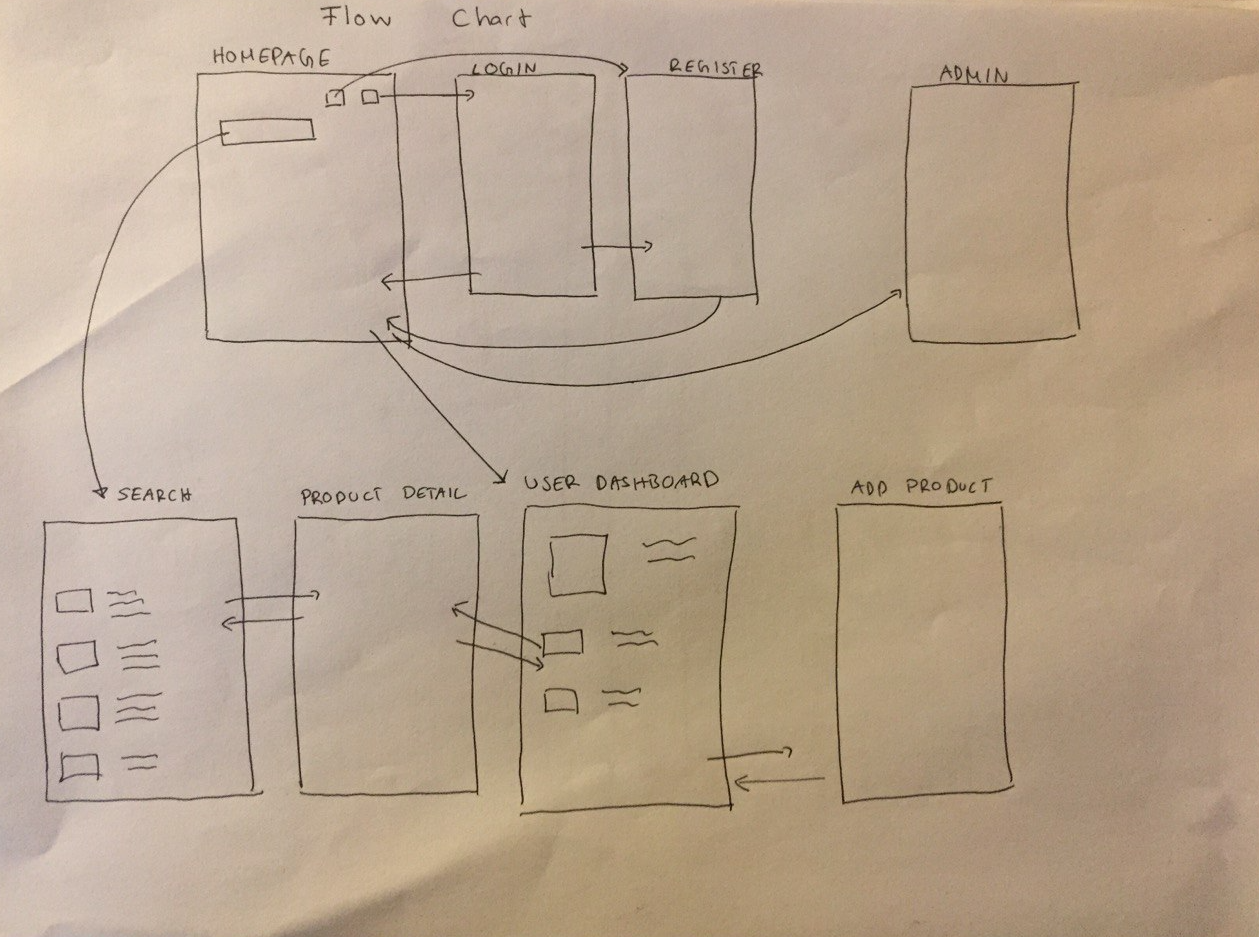 Flow Chart
HOMEPAGE
LOGIN
REGISTER
ADMIN
SEARCH
PRODUCT DETAIL
USER DASHBOARD
ADD PRODUCT